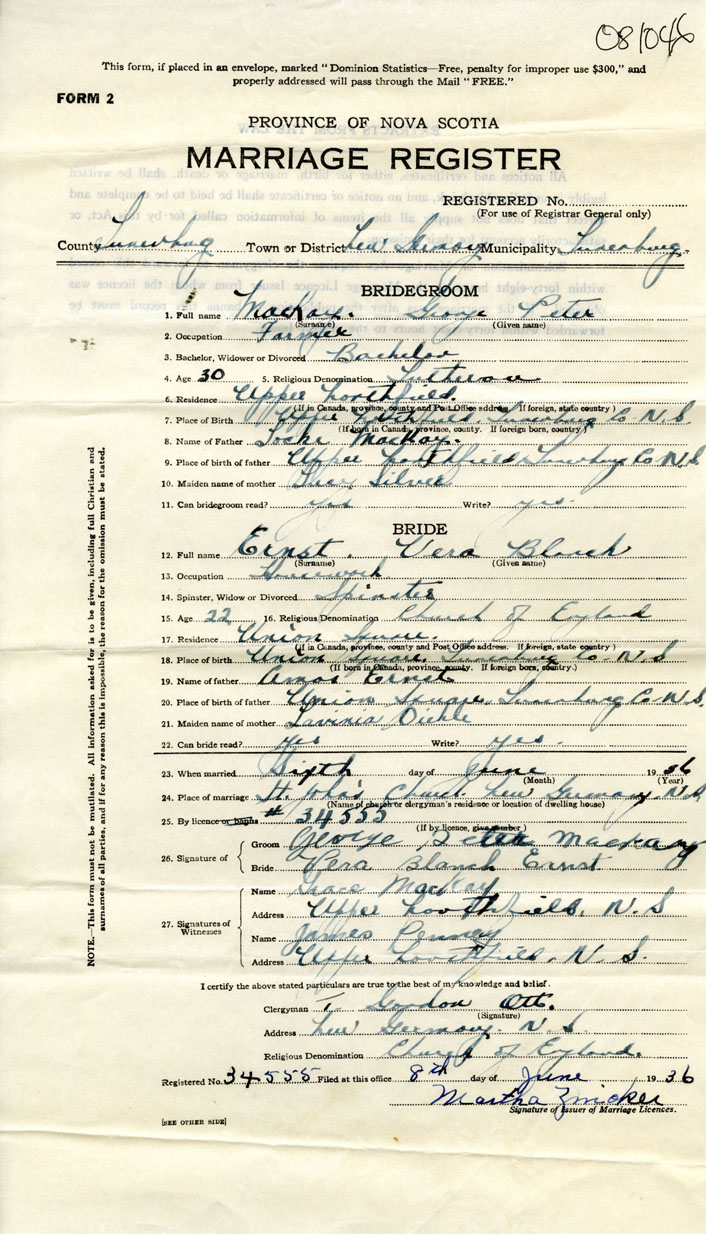 08/046
This form, if placed in an envelope, marked "Dominion Statistics—Free, penalty for improper use $300," and
properly addressed will pass through the Mail "FREE."
FORM 2
PROVINCE OF NOVA SCOTIA
MARRIAGE REGISTER
REGISTERED No.
(For use of Registrar General only)
County Lunenburg Town or District New Germany Municipality Lunenburg
BRIDEGROOM
1. Full name MacKay. George Peter
(Surname) (Given name)
2. Occupation Farmer
3. Bachelor, Widower or Divorced Bachelor
4. Age 30 5. Religious Denomination Lutheran
6. Residence Upper Northfield.
(If in Canada, province, county and Post Office address. If foreign, state country)
7. Place of Birth Upper Northfield, Lunenburg Co. N.S.
(If born in Canada, province, county. If foreign born, country.)
8. Name of Father MacKay.
9. Place of birth of father Upper Northfield Lunenburg Co N.S
10. Maiden name of mother Silver
11. Can bridegroom read? yes Write? yes.
BRIDE
12. Full name Ernst. Vera Blanch
(Surname) (Given name)
13. Occupation Housework
14. Spinster, Widow or Divorced Spinster
15. Age 22 16. Religious Denomination Church of England
17. Residence Union Square.
(If in Canada, province, county and Post Office address. If foreign, state country)
18. Place of birth Union Square, Lunenburg Co. N.S
(If born in Canada, province, county. If foreign born, country.)
19. Name of father Amos Ernst
20. Place of birth of father Union Square, Lunenburg Co. N.S.
21. Maiden name of mother Lavinia Diehle
22. Can bride read? yes Write? yes.
23. When married Sixth day of June 1936
(Month) (Year)
24. Place of marriage St. John's Church New Germany. N.S
(Name of church or clergyman's residence or location of dwelling house)
25. By licence or banns # 34555
(If by licence, give number)
26. Signature of
Groom George Peter Mackay
Bride Vera Blanch Ernst
27. Signatures of Witnesses
Name Grace MacKay
Address Upper Northfield, N.S
Name James Penney
Address Upper Northfield, N.S.
I certify the above stated particulars are true to the best of my knowledge and belief.
Clergyman T. Gordon Ott.
(Signature)
Address New Germany. N.S.
Religious Denomination Church of England.
Registered No. 34555 Filed at this office 8th day of June 1936
Martha Zwicker
Signature of Issuer of Marriage Licences.
[SEE OTHER SIDE]
NOTE.—This form must not be mutilated. All information asked for is to be given, including full Christian and
surnames of all parties, and if for any reason this is impossible, the reason for the omission must be stated.